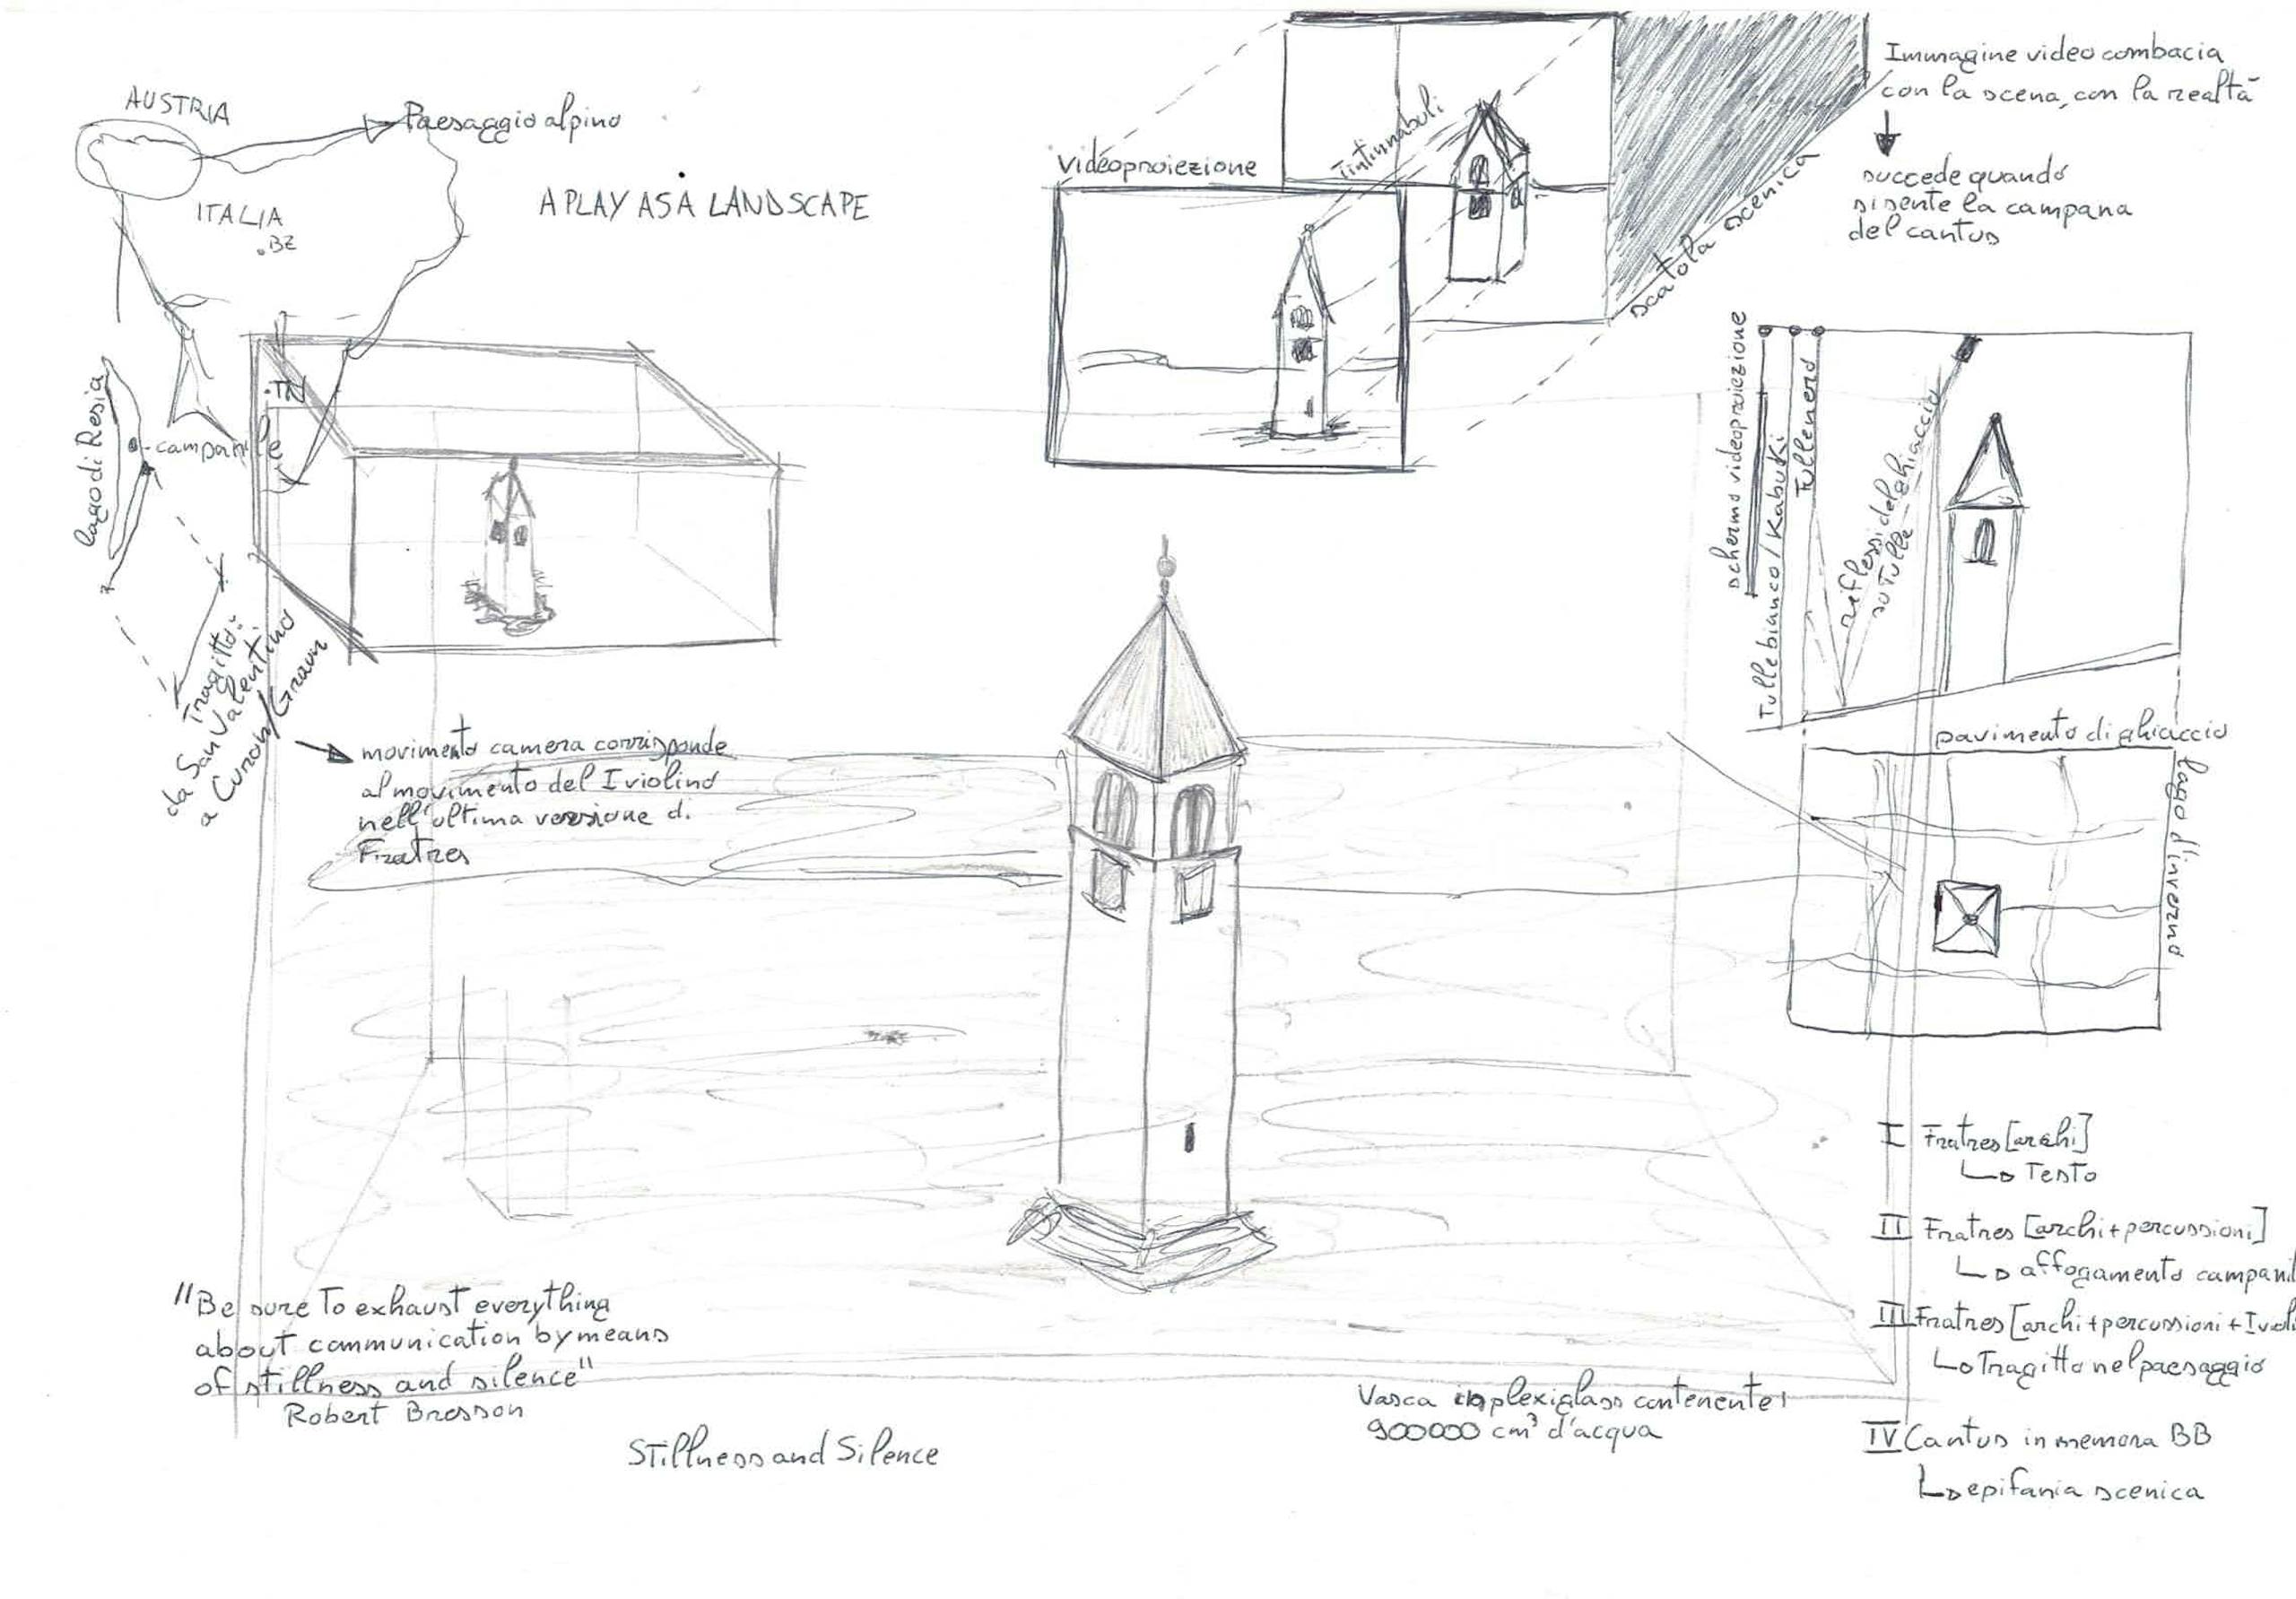 AUSTRIA
Paesaggio alpino
ITALIA
.BZ
A PLAY AS A LANDSCAPE
.TN
lago di Resia
campanile
Tragitto:
da San Valentino
a Curon/Graun
movimento camera corrisponde
al movimento del I violino
nell'ultima versione di
Fratres
videoproiezione
Tintinnabuli
scatola scenica
Immagine video combacia
con la scena, con la realtà
succede quando
si sente la campana
del cantus
schermo videoproiezione
Tulle bianco / Kabuki
Tulle nero
riflessi del ghiaccio
su Tulle
pavimento di ghiaccio
lago d'inverno
I Fratres [archi]
Testo
II Fratres [archi+percussioni]
affogamento campanil
III Fratres [archi+percussioni+I violi
Tragitto nel paesaggio
IV Cantus in memora BB
epifania scenica
"Be sure to exhaust everything
about communication by means
of stillness and silence"
Robert Bresson
Stillness and Silence
Vasca in plexiglass contenente
900000 cm³ d'acqua